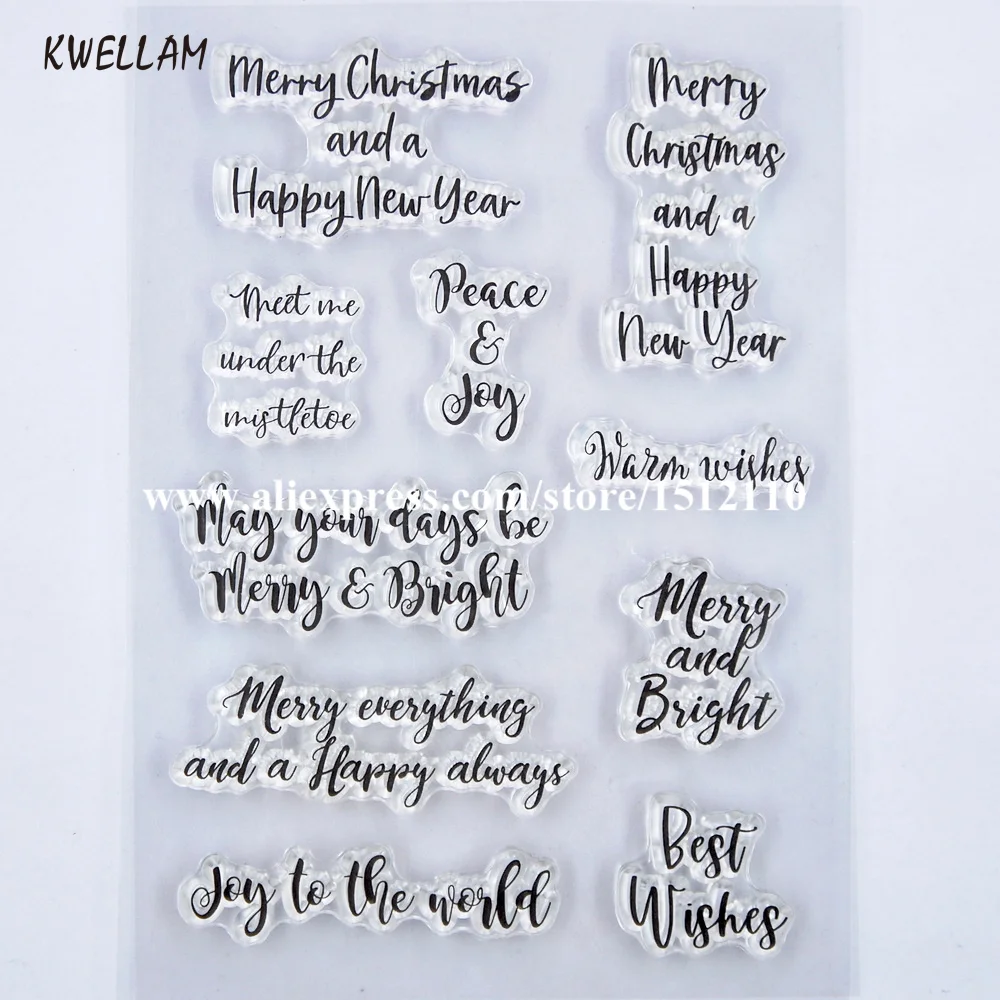 KWELLAM
Merry Christmas
and a
Happy New Year
Merry
Christmas
and a
Happy
New Year
Meet me
under the
mistletoe
Peace
&
Joy
Warm wishes
www.aliexpress.com/store/1512110
May your days be
Merry & Bright
Merry
and
Bright
Merry everything
and a Happy always
Joy to the world
Best
Wishes